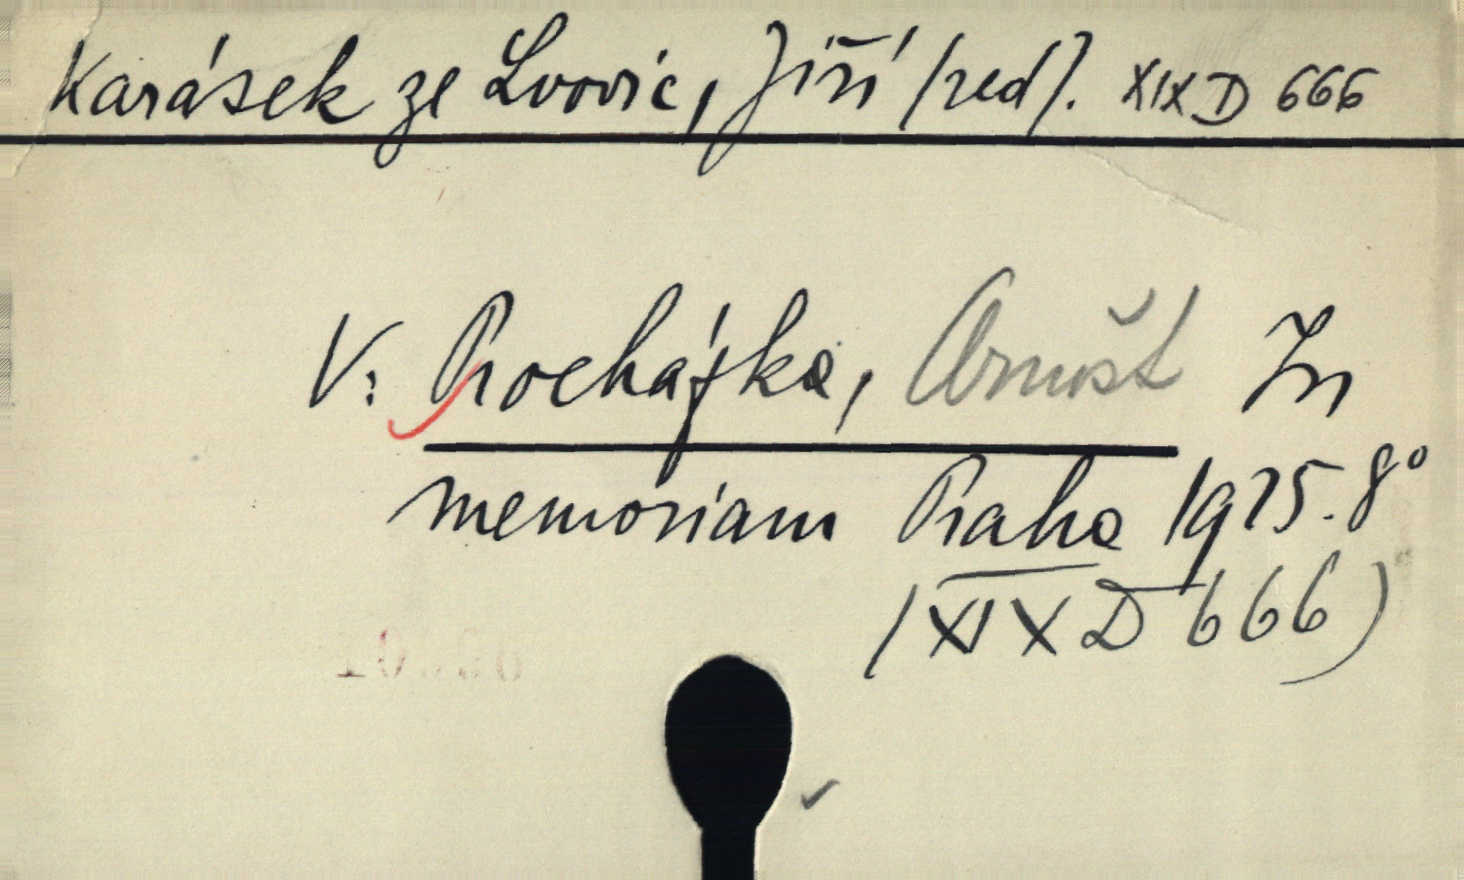 Karásek ze Lvovic, Jiří /red/. XIX D 666
V: Procházka, Arnošt In
memoriam Praha 1925. 8°
(XIX D 666)